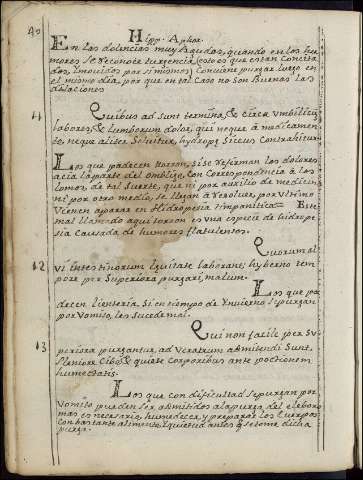 40
Hipp. Aphor.
En las dolencias muy Agudas, quando en los hu
mores se reconoce turgencia (esto es que estan concita
dos, y movidos por si mismos) Conviene purgar luego en
el mismo dia, por que en tal caso no son Buenas las
dilaciones
11
Quibus ad sunt termina, & circa umbilicũ
labores, & lumborum dolor, qui neque à medicamento,
neque aliter Solvitur, hydrops Siccus Contrahitur
Los que padecen torzon, si se refirman los dolores
acia la parte del ombligo, con correspondencia à los
lomos, de tal suerte, que ni por auxilio de medicina
ni por otro medio, se llegan à resolver, por vltimo
vienen aparar en Hidropesia timpanitica= Este
mal llamado aqui torzon es vna especie de hidrope
sia causada de humores flatulentos.
12
Quorum al
vi intestinorum levitate laborant, hyberno tem
pore per Superiora purgari, malum.
Los que pa
decen lienteria, Si en tiempo de Ynvierno sepurgan
por vomito, les sucede mal.
13
Qui non facile per Su
periora purgantur, ad Veratrum admitendi Sunt,
pleniore Cibo, & quiete corporibus ante potionem
humectatis.
Los que con dificultad se purgan por
vomito pueden ser admitidos ala purga del eleboro
mas es necesario, humedecer, y preparar los cuerpos
con bastante alimento, y quietud antes que se tome dicha
purga.